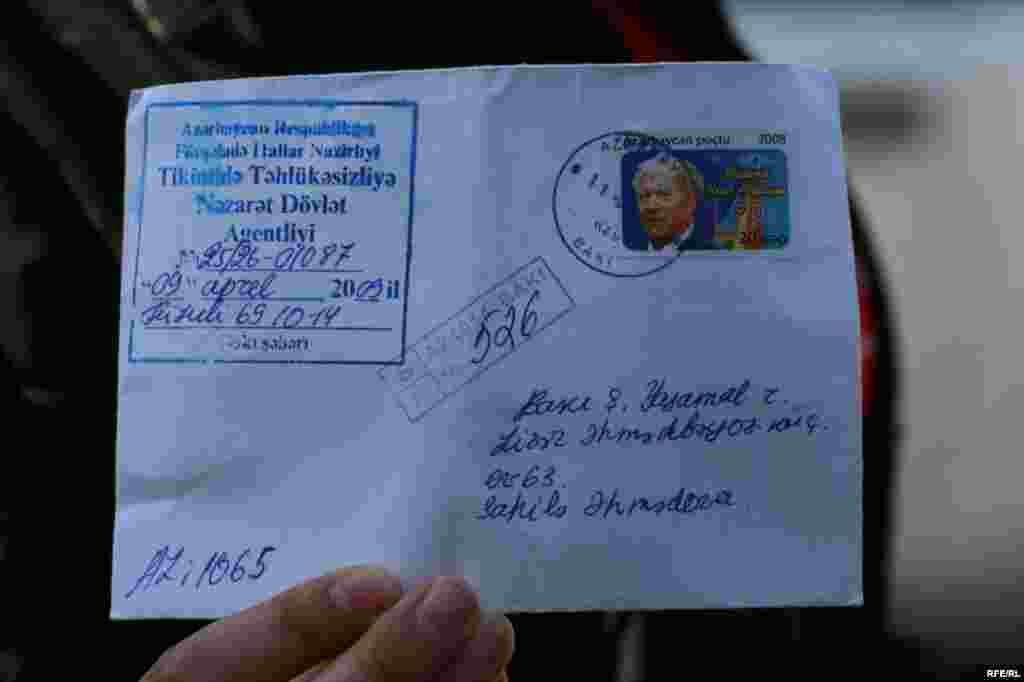 Azərbaycan Respublikası
Fövqəladə Hallar Nazirliyi
Tikintidə Təhlükəsizliyə
Nəzarət Dövlət
Agentliyi
25/26-0/087
"09" aprel 2009 il
69 10-14
Bakı şəhəri
Azərbaycan poçtu 2008
BAKI
BAKI
526
Bakı ş. Yasamal r.
Əhmədbəyov küç.
ev 63.
Sahilə Əhmədova
AZ;1065
RFE/RL